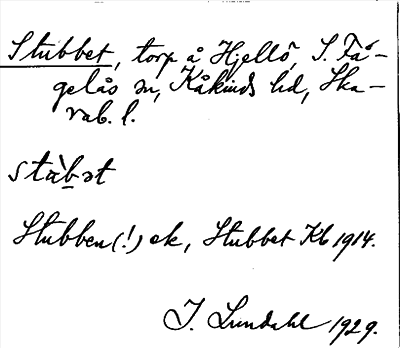 Stubbet, torp å Hjellö, S. Få-
gelås sn, Kåkinds hd, Ska-
rab. l.
stàb̲ət
Stubben (!) ek, Stubbet Kb 1914.
I. Lundahl 1929.